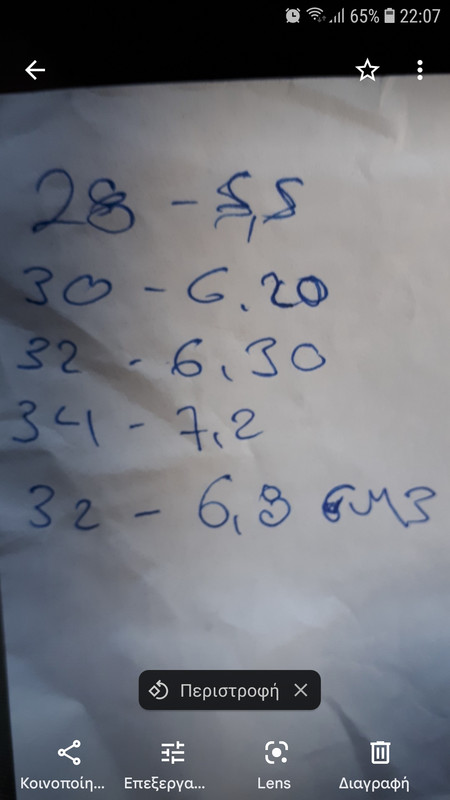 65% 22:07
28 - 5,5
30 - 6.20
32 - 6,30
34 - 7,2
32 - 6,3
Περιστροφή
Κοινοποίη... Επεξεργα... Lens Διαγραφή